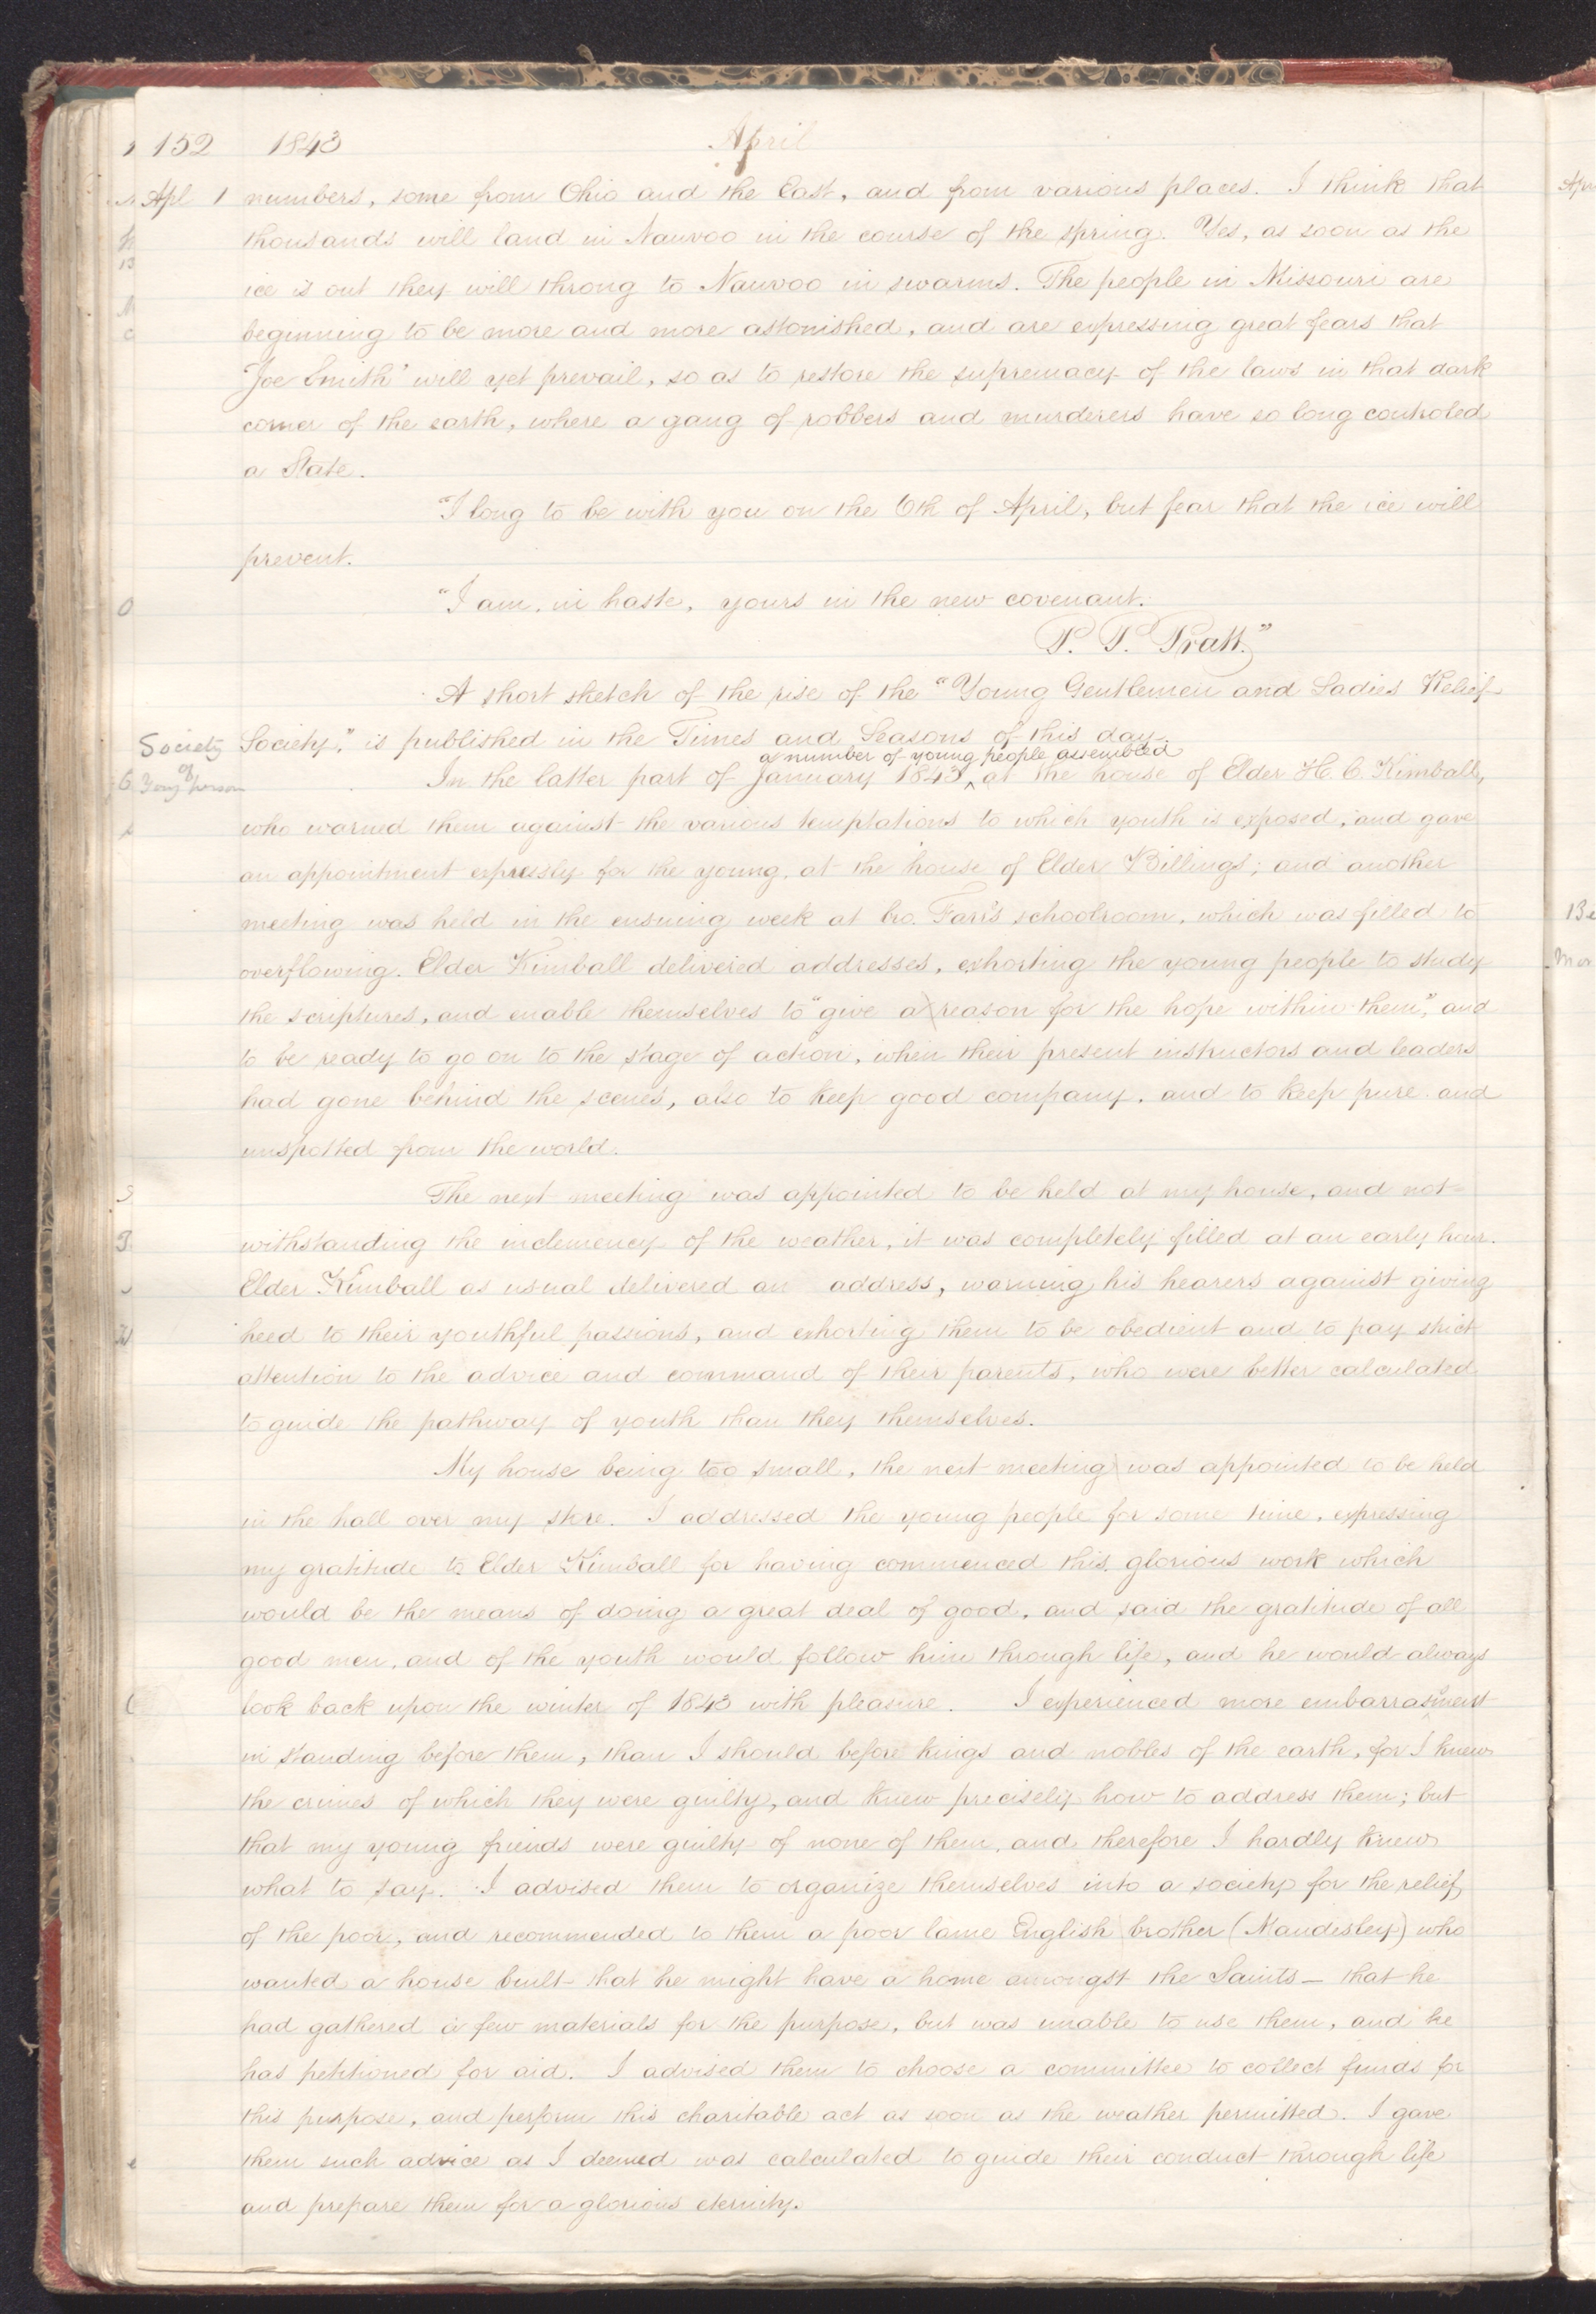 152 1843 April
Apl 1 numbers, some from Ohio and the East, and from various places. I think that
thousands will land in Nauvoo in the course of the spring. Yes, as soon as the
ice is out they will throng to Nauvoo in swarms. The people in Missouri are
beginning to be more and more astonished, and are expressing great fears that
"Joe Smith" will yet prevail, so as to restore the supremacy of the laws in that dark
corner of the earth, where a gang of robbers and murderers have so long controled
a State.
"I long to be with you on the 6th of April, but fear that the ice will
prevent.
"I am, in haste, yours in the new covenant.
P. P. Pratt."
A short sketch of the rise of the "Young Gentlemen and Ladies Relief
Society Society," is published in the Times and Seasons of this day.
of a number of young people assembled
Young person In the latter part of January 1843, ^ at the house of Elder H. C. Kimball,
who warned them against the various temptations to which youth is exposed, and gave
an appointment expressly for the young, at the house of Elder Billings; and another
meeting was held in the ensuing week at bro. Farr's schoolroom, which was filled to
overflowing. Elder Kimball delivered addresses, exhorting the young people to study
the scriptures, and enable themselves to "give a reason for the hope within them", and
to be ready to go on to the stage of action, when their present instructors and leaders
had gone behind the scenes, also to keep good company, and to keep pure and
unspotted from the world.
The next meeting was appointed to be held at my house, and not-
withstanding the inclemency of the weather, it was completely filled at an early hour.
Elder Kimball as usual delivered an address, warning his hearers against giving
heed to their youthful passions, and exhorting them to be obedient and to pay strict
attention to the advice and command of their parents, who were better calculated
to guide the pathway of youth than they themselves.
My house being too small, the next meeting was appointed to be held
in the hall over my store. I addressed the young people for some time, expressing
my gratitude to Elder Kimball for having commenced this glorious work which
would be the means of doing a great deal of good, and said the gratitude of all
good men, and of the youth would follow him through life, and he would always
look back upon the winter of 1843 with pleasure. I experienced more embarrassment
in standing before them, than I should before kings and nobles of the earth, for I knew
the crimes of which they were guilty, and knew precisely how to address them; but
that my young friends were guilty of none of them, and therefore I hardly knew
what to say. I advised them to organize themselves into a society for the relief
of the poor, and recommended to them a poor lame English brother (Maudesley) who
wanted a house built that he might have a home amongst the Saints — that he
had gathered a few materials for the purpose, but was unable to use them, and he
has petitioned for aid. I advised them to choose a committee to collect funds for
this purpose, and perform this charitable act as soon as the weather permitted. I gave
them such advice as I deemed was calculated to guide their conduct through life
and prepare them for a glorious eternity.